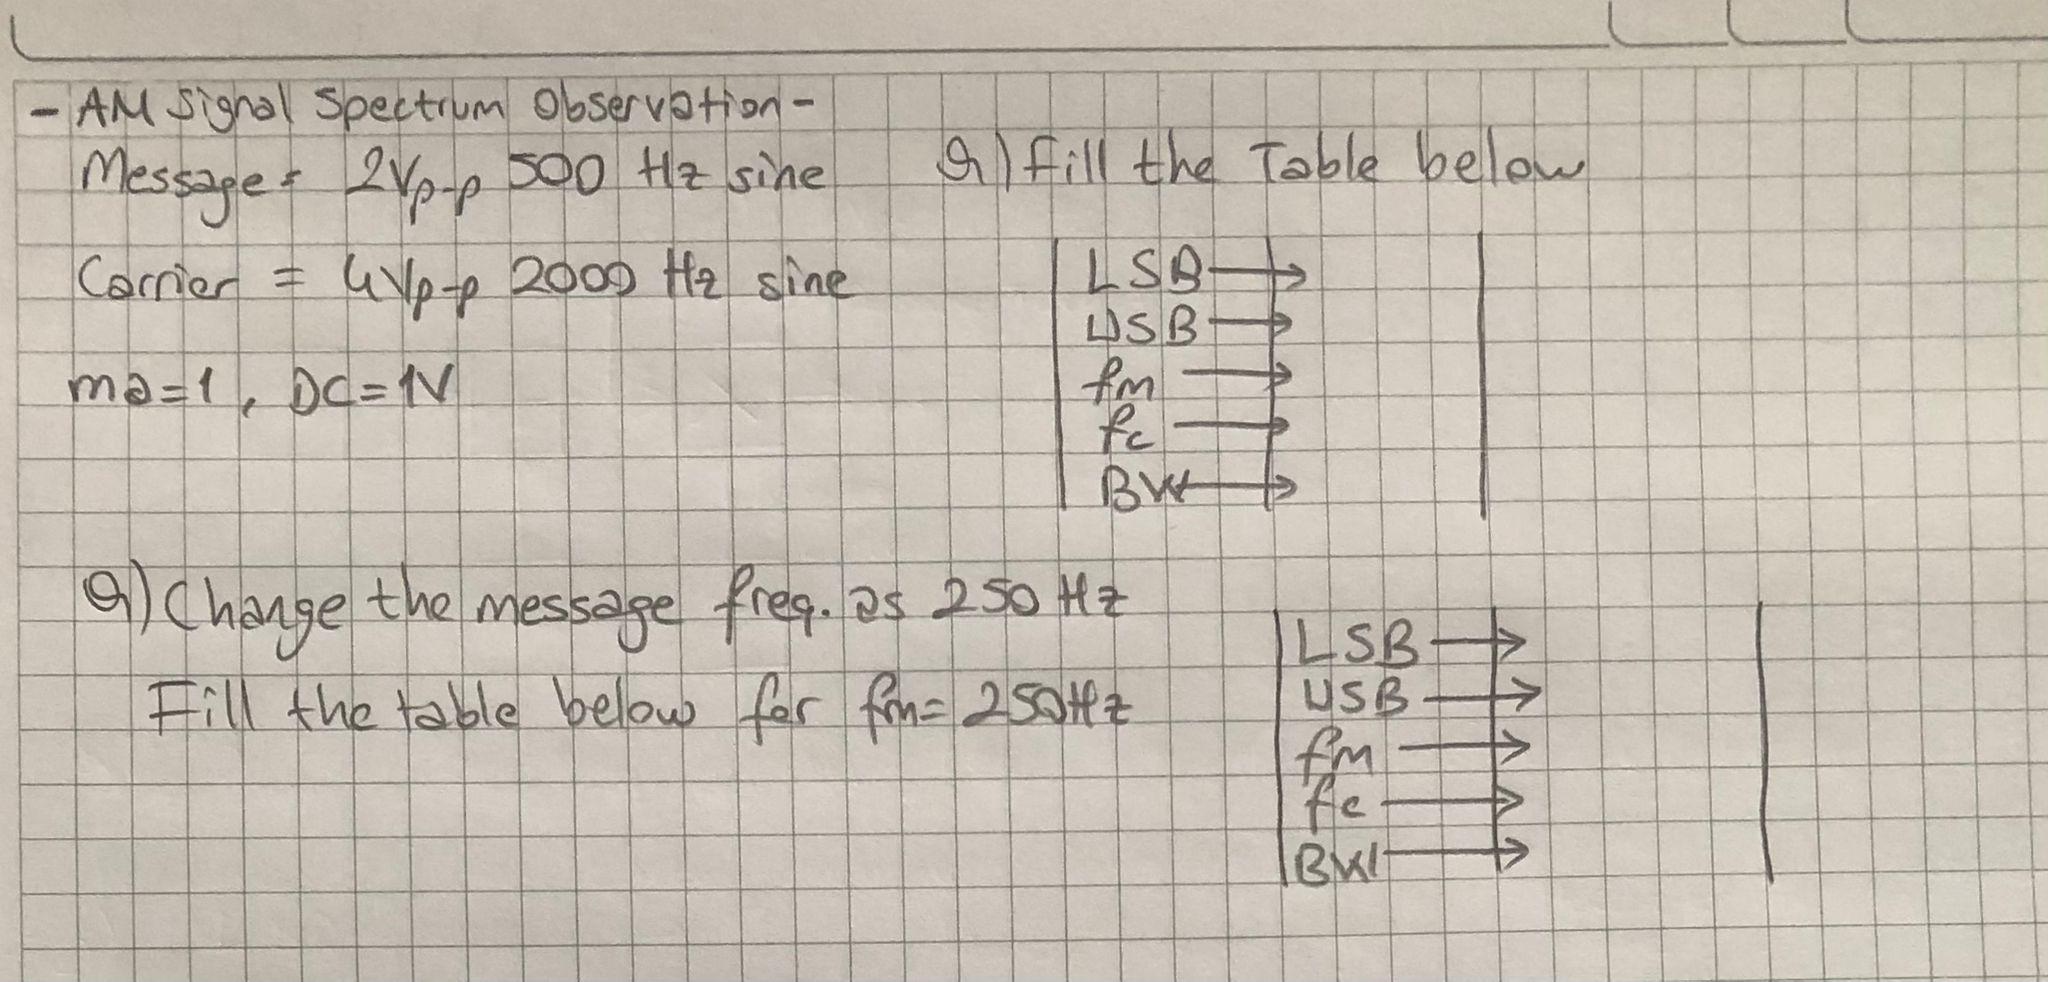 - AM Signal Spectrum Observation -
Message = 2Vp-p 500 Hz sine
Carrier = 4Vp-p 2000 Hz sine
ma=1, DC=1V
Q) Fill the Table below
LSB →
USB →
fm →
fc →
BW →
Q) Change the message freq. as 250 Hz
Fill the table below for fm= 250Hz
LSB →
USB →
fm →
fc →
BW →